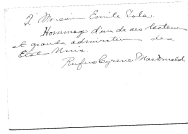 A Monsieur Emile Zola
Hommage d'un de ses lecteurs
et grands admirateurs des
Etats Unis.
Rufus Cyrene Macdonald